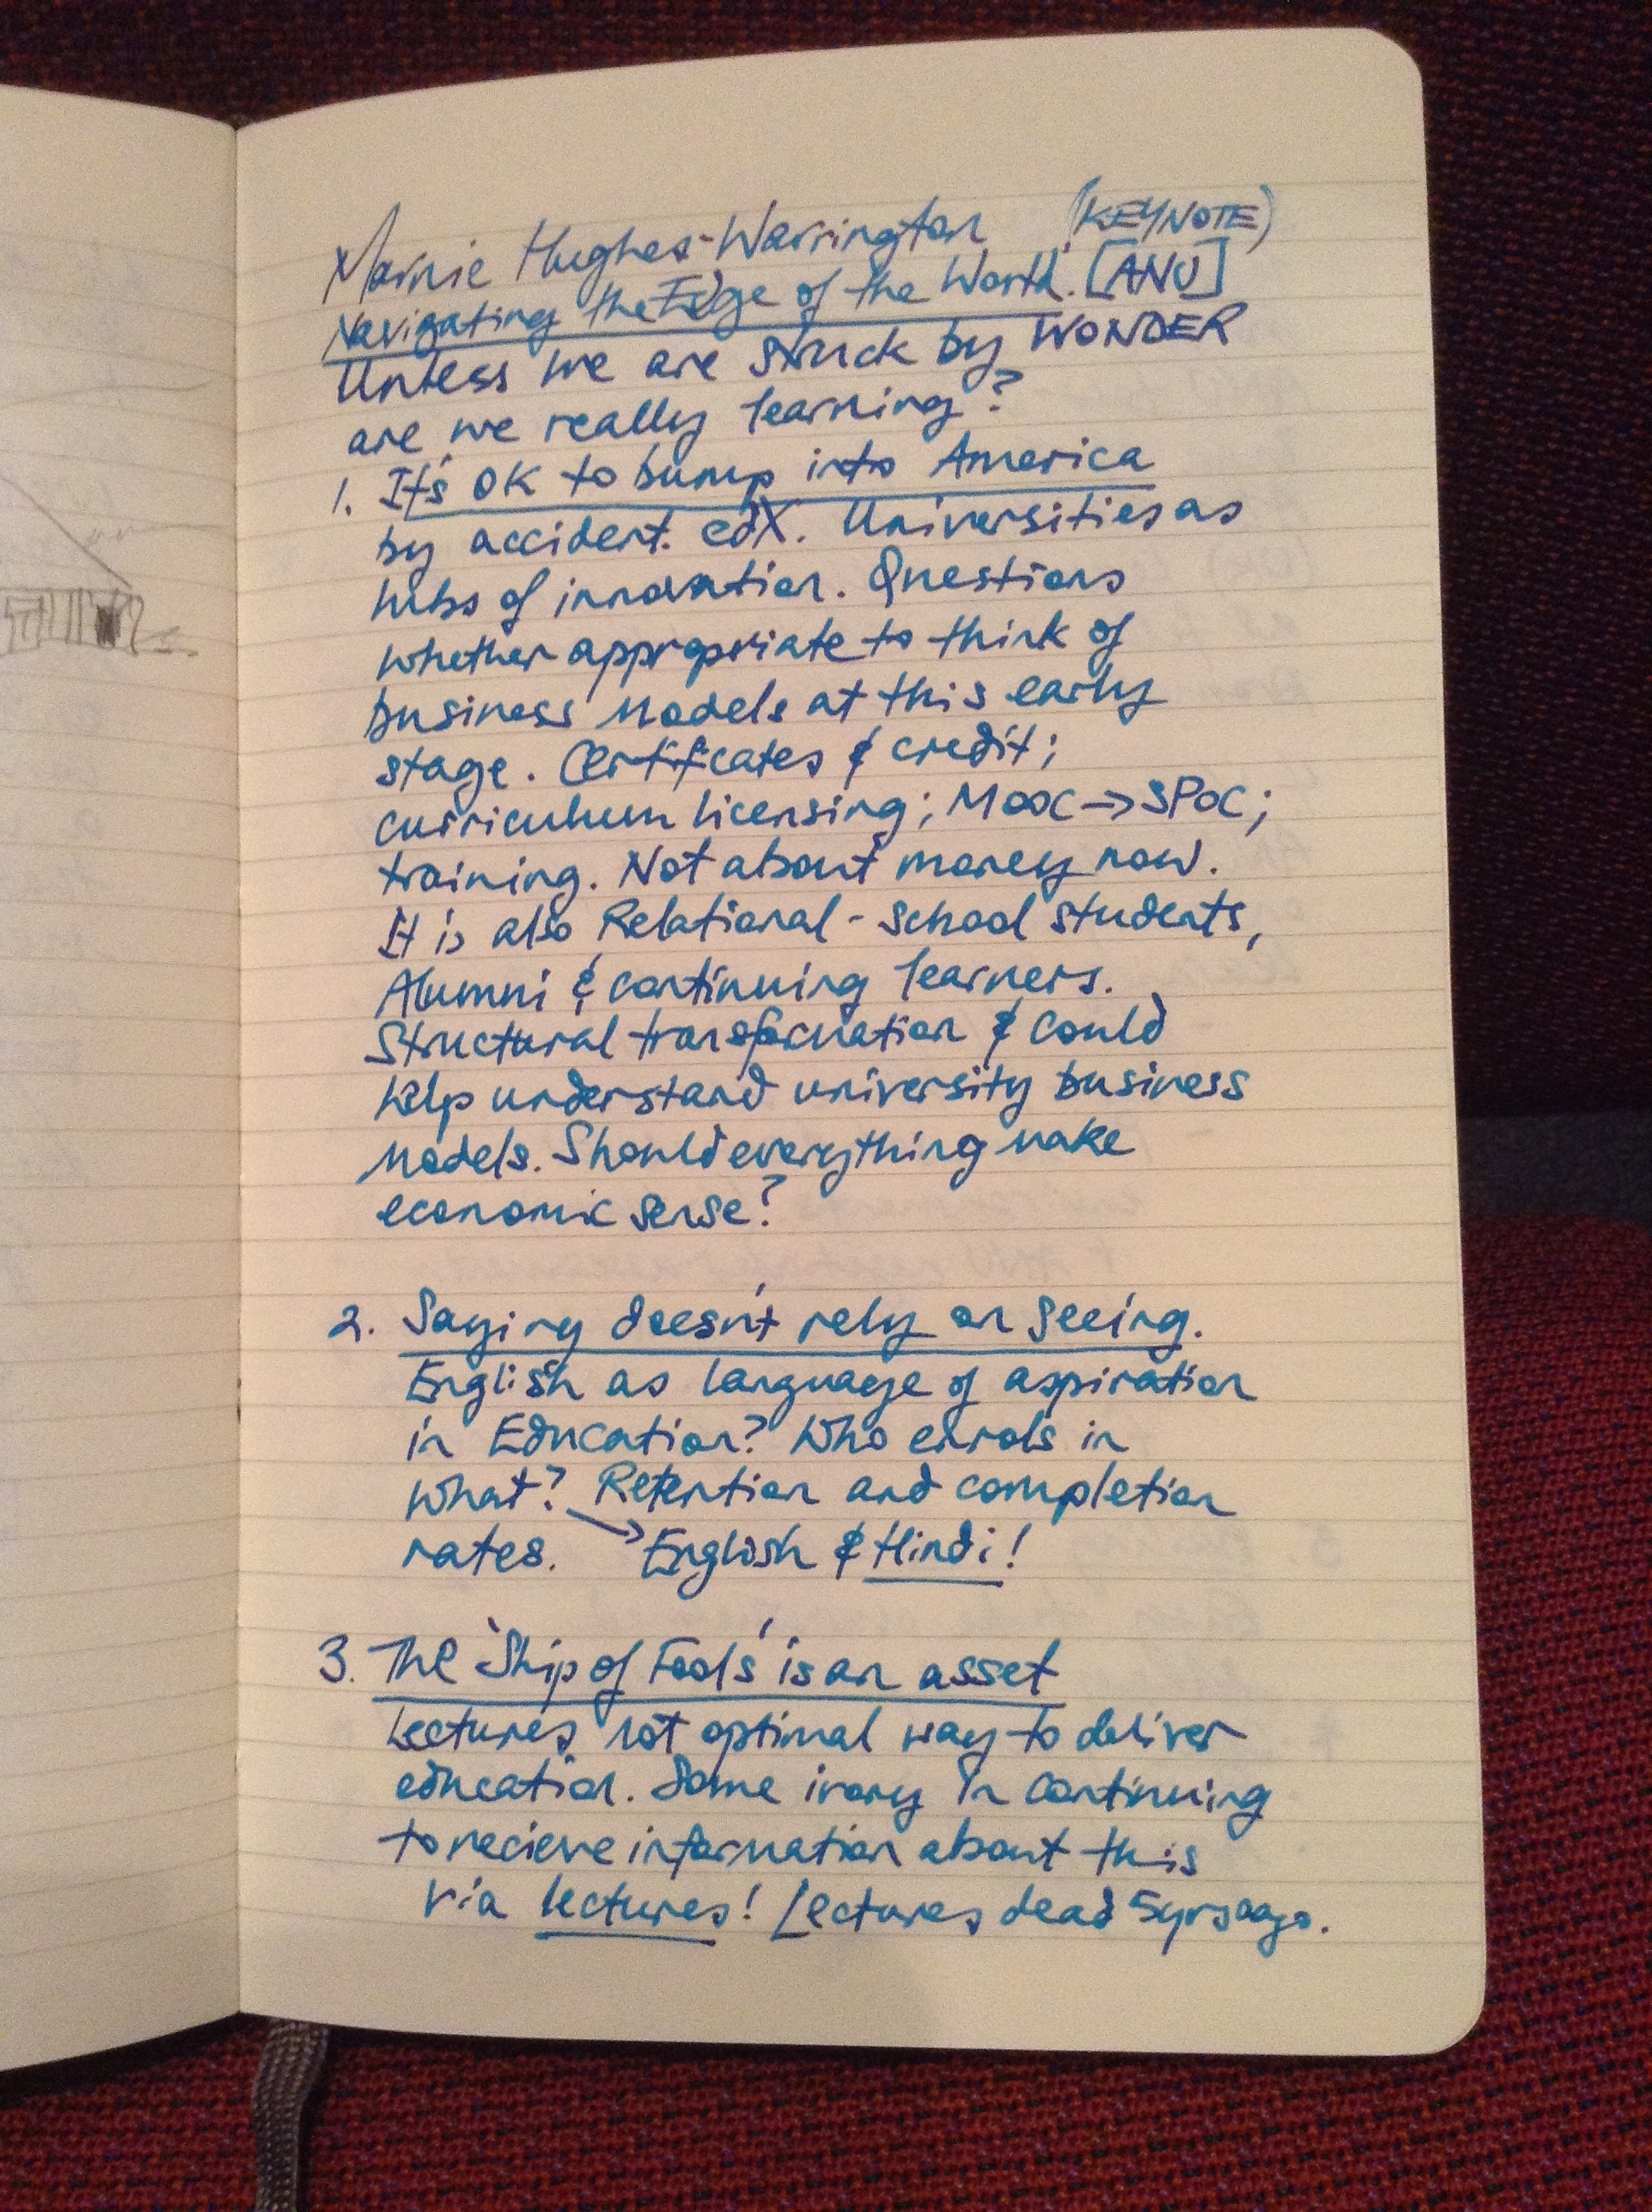 Marnie Hughes-Warrington (KEYNOTE)
Navigating the Edge of the World. [ANU]
Unless we are struck by WONDER
are we really learning?
1. It's OK to bump into America
by accident. edX. Universities as
hubs of innovation. Questions
whether appropriate to think of
business models at this early
stage. Certificates & credit;
curriculum licensing; MOOC → SPOC;
training. Not about money now.
It is also Relational - School students,
Alumni & continuing learners.
Structural transformation & could
help understand university business
models. Should everything make
economic sense?
2. Saying doesn't rely on seeing.
English as language of aspiration
in Education? Who enrols in
what? Retention and completion
rates. → English & Hindi!
3. The 'Ship of Fools' is an asset
Lectures not optimal way to deliver
education. Some irony in continuing
to recieve information about this
via lectures! Lectures dead 5yrs ago.